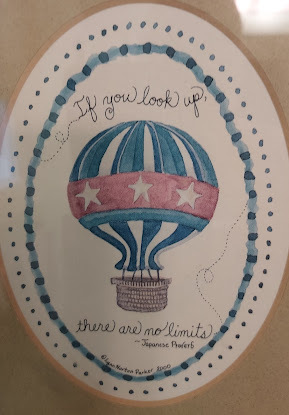 If you look up,
there are no limits
~ Japanese Proverb
©Lynn Norton Parker 2000